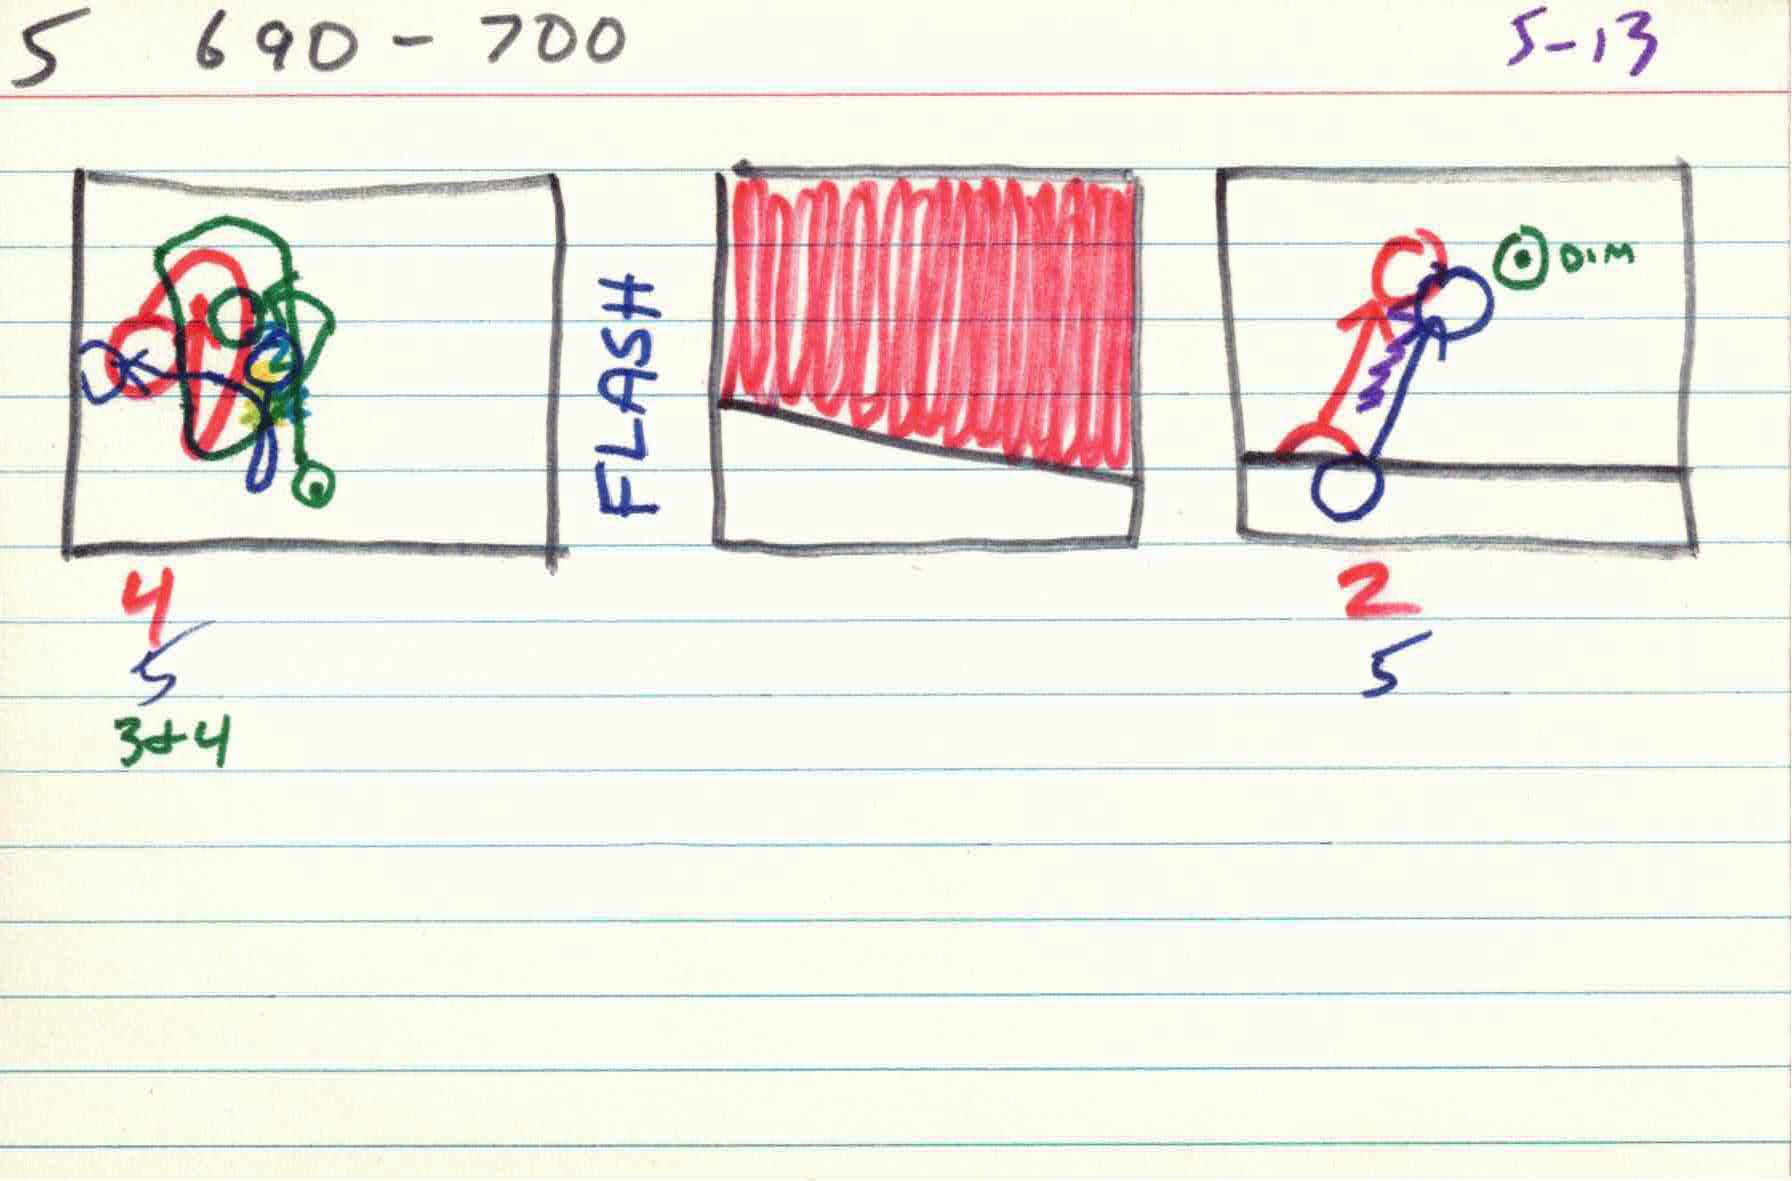 5 690 - 700 5-13
FLASH
DIM
2
4
5
3+4
2
5